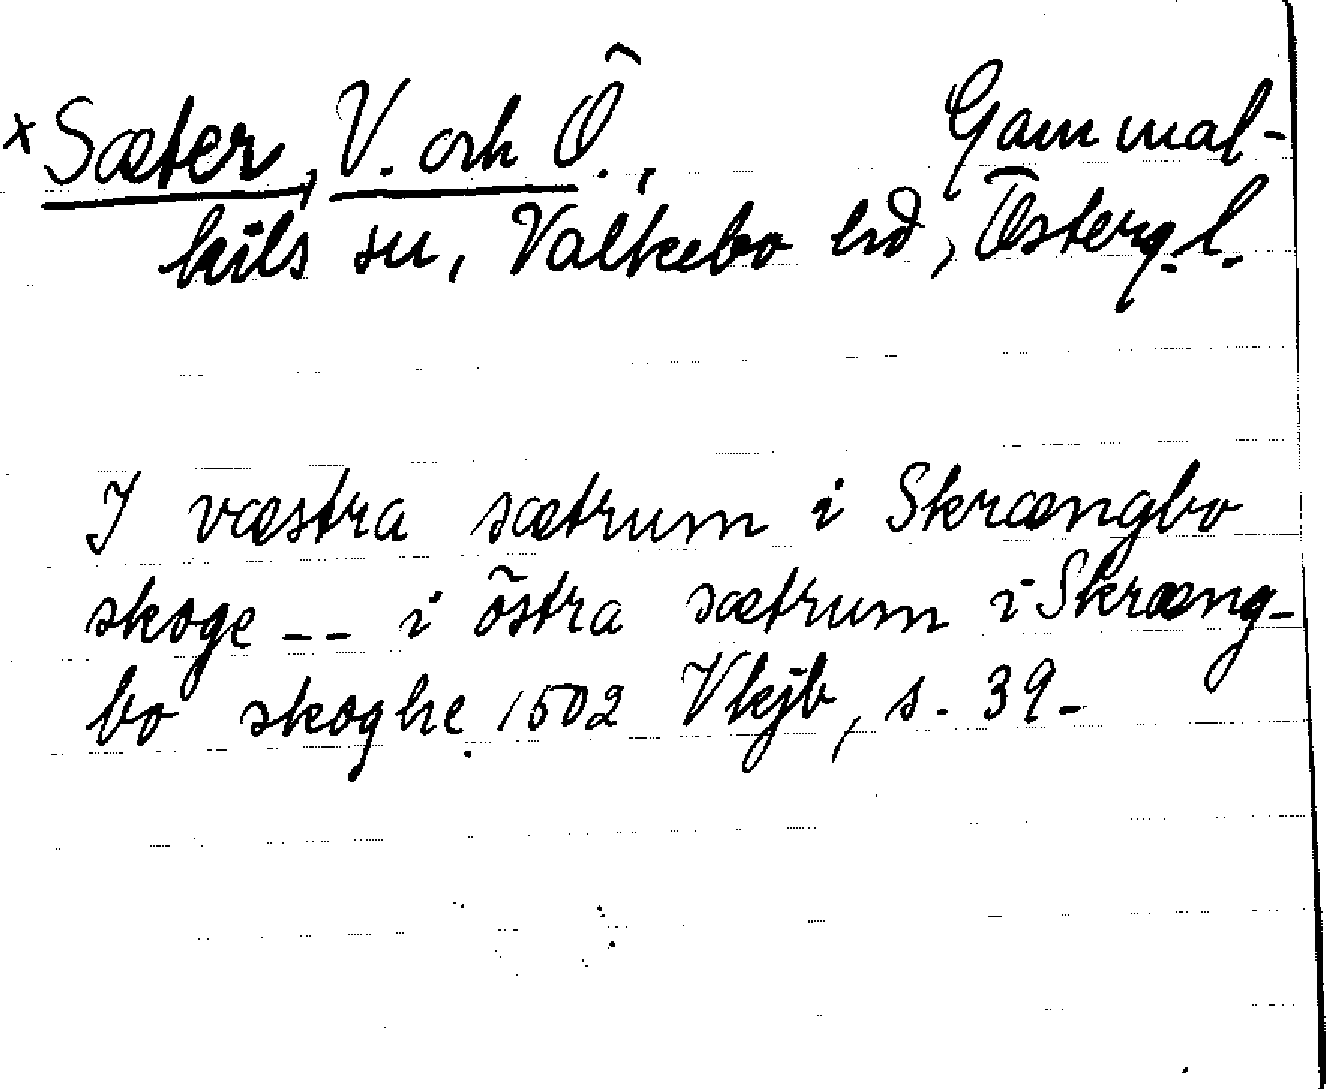 ×Sæter, V. och Ö., Gammal-
kils sn, Valkebo hd, Österg.l.
I væstra sætrum i Skrængbo
skoge -- i östra sætrum i Skræng-
bo skoghe. 1502 Vkjb, s. 39.